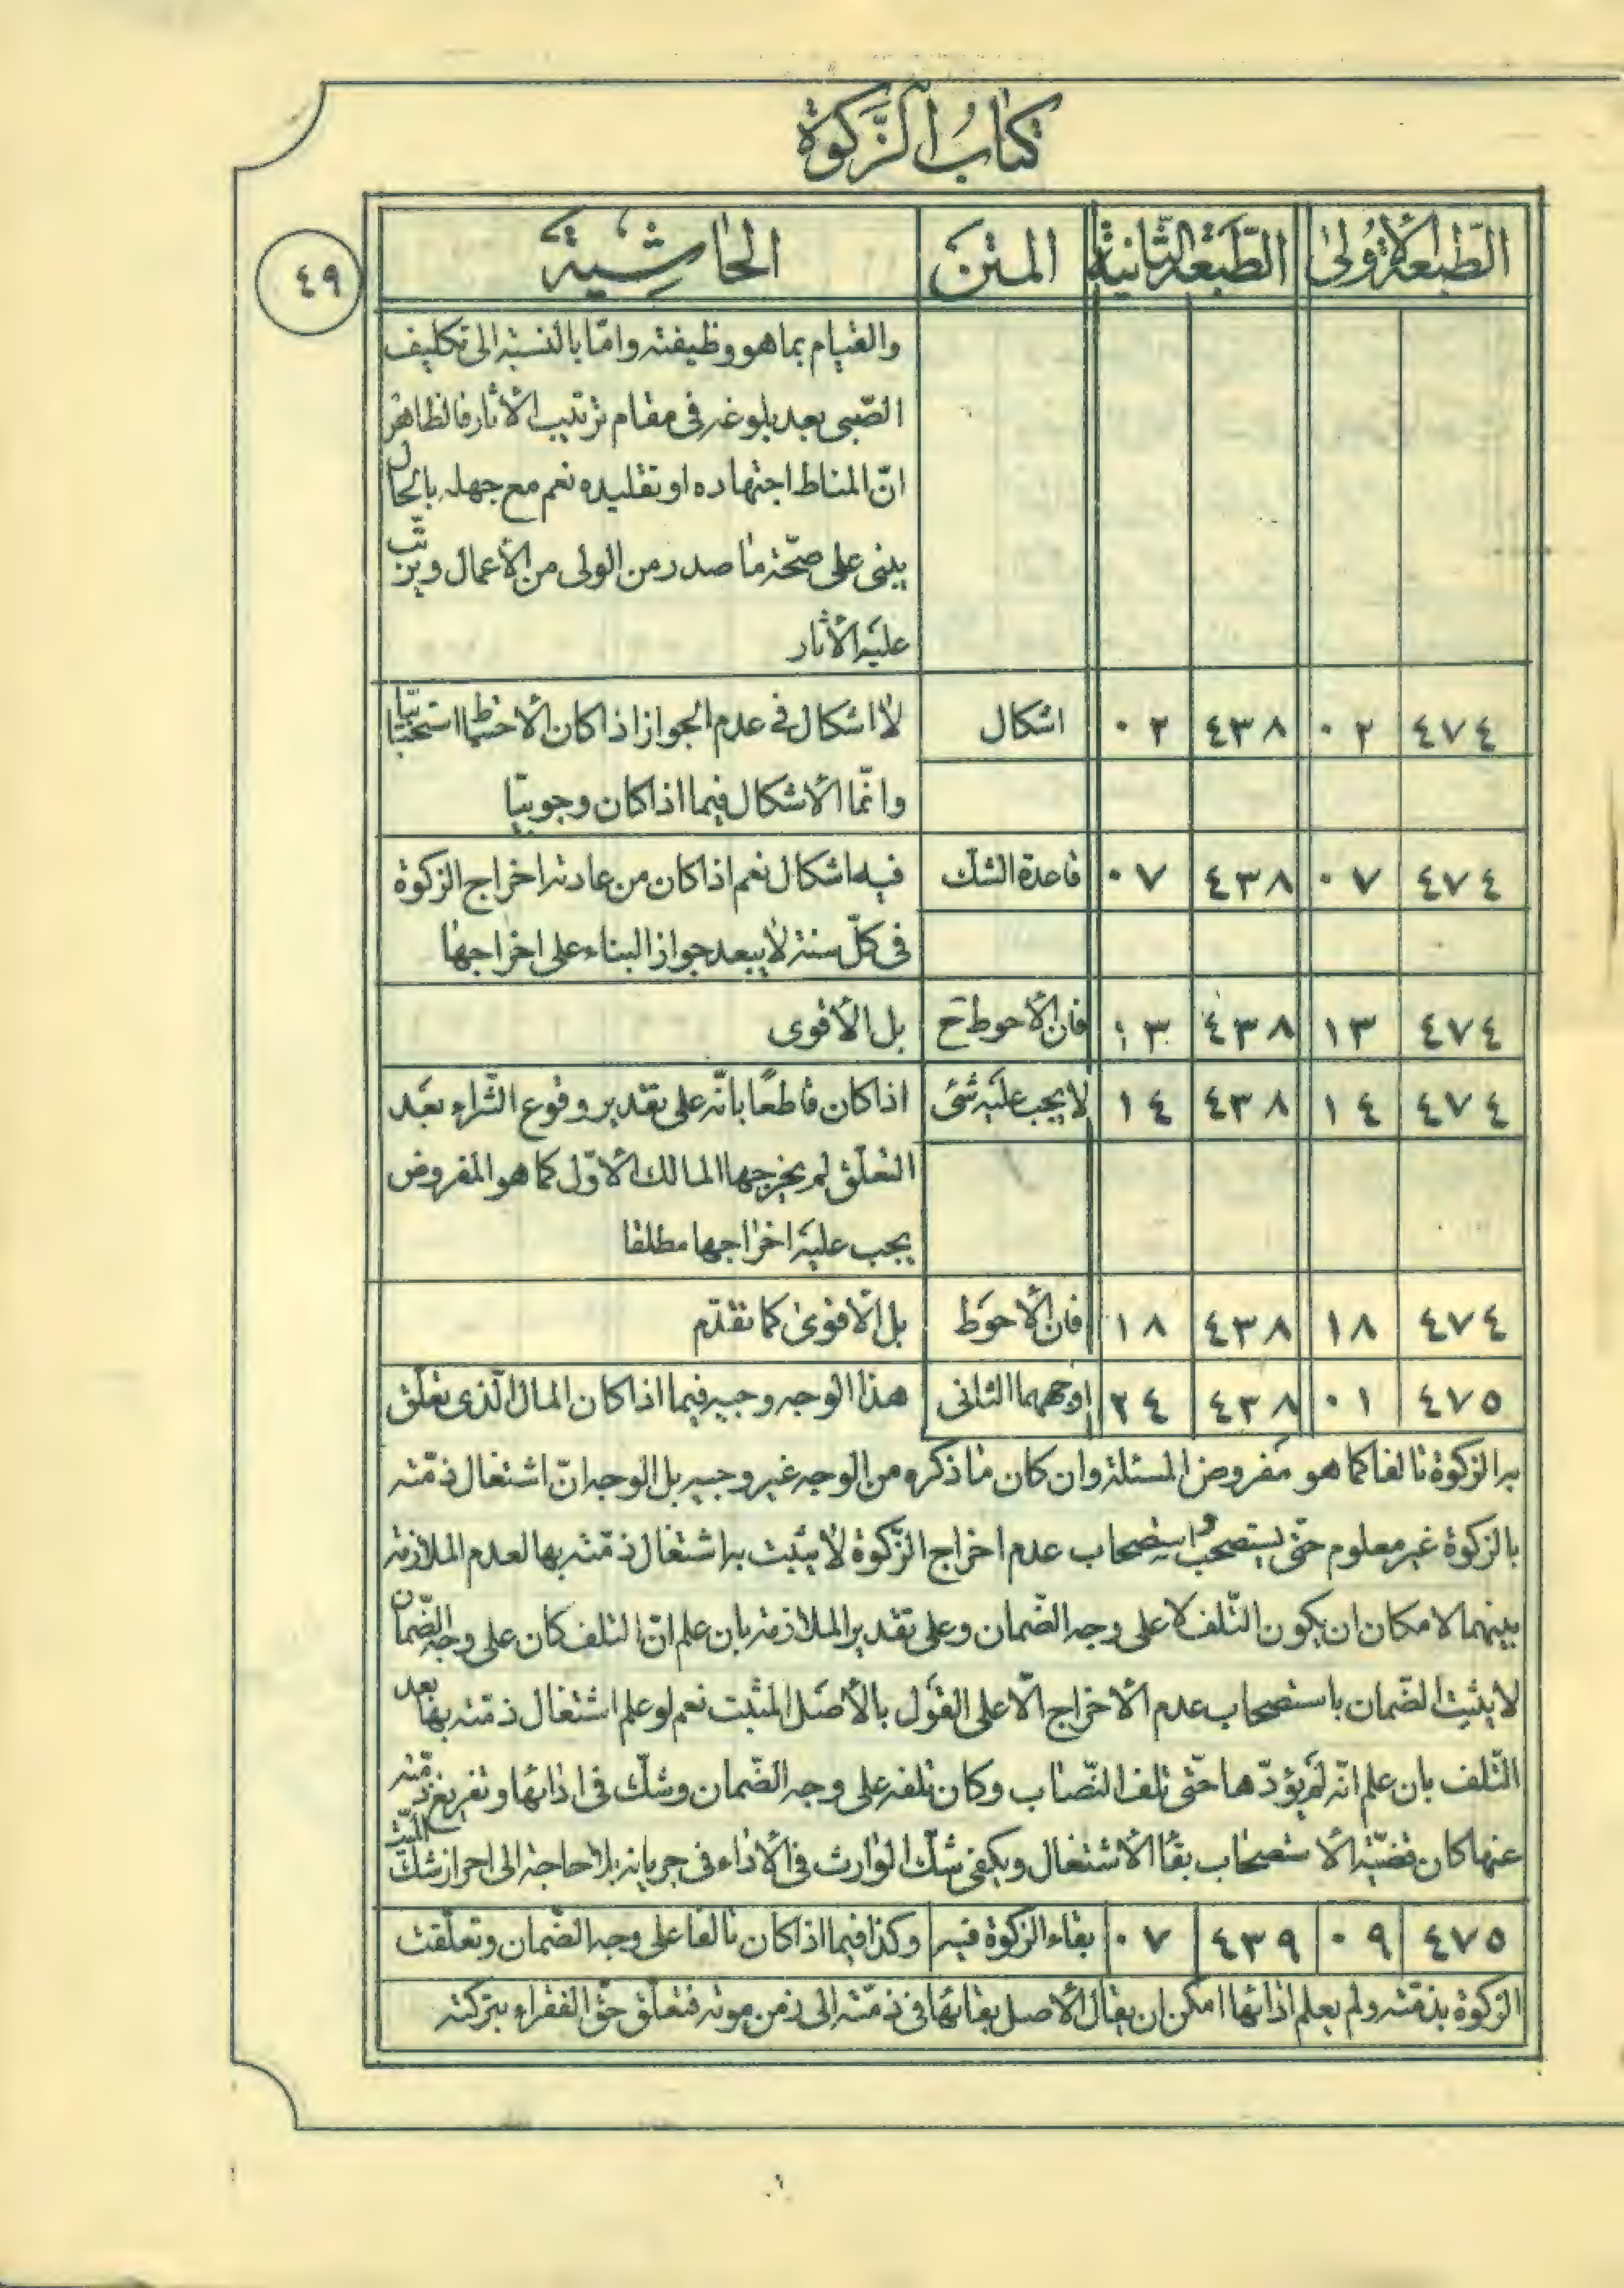 كتاب الزّكوة
الطّبعة الأولى الطّبعة الثّانية المتن الحاشية
٤٩
والقيام بما هو وظيفته وامّا بالنسبة الى تكليف
الصّبى بعد بلوغه فى مقام ترتيب الأثار فالظاهر
انّ المناط اجتهاده او تقليده نعم مع جهله بالحال
يبنى على صحّة ما صدر من الولى من الأعمال ويرتّب
عليه الأثار
٤٧٤ ٠٢ ٤٣٨ ٠٢ اشكال لا اشكال فى عدم الجواز اذا كان الاحتياط استحبابيّا
وانّما الأشكال فيما اذا كان وجوبيّا
٤٧٤ ٠٧ ٤٣٨ ٠٧ قاعدة الشك فيه اشكال نعم اذا كان من عادته اخراج الزكوة
فى كلّ سنة لا يبعد جواز البناء على اخراجها
٤٧٤ ١٣ ٤٣٨ ١٣ فان الأحوط ح بل الأقوى
٤٧٤ ١٤ ٤٣٨ ١٤ لا يجب عليه شئ اذا كان قاطعًا بانّه على تقدير وقوع الشّراء بعد
التعلّق لم يخرجها المالك الأوّل كما هو المفروض
يجب عليه اخراجها مطلقا
٤٧٤ ١٨ ٤٣٨ ١٨ فان الأحوط بل الأقوى كما تقدّم
٤٧٥ ٠١ ٤٣٨ ٢٤ اوجههما الثانى هذا الوجه وجيه فيما اذا كان المال الّذى تعلّق
به الزكوة تالفا كما هو مفروض المسئلة وان كان ما ذكره من الوجه غير وجيه بل الوجه انّ اشتغال ذمّته
بالزكوة غير معلوم حتّى يستصحب واستصحاب عدم اخراج الزّكوة لا يثبت به اشتغال ذمّته بها لعدم الملازمة
بينهما لامكان ان يكون التّلف لا على وجه الضّمان وعلى تقدير الملازمة بان علم انّ التلف كان على وجه الضّمان
لا يثبت الضّمان باستصحاب عدم الاخراج الّا على القول بالأصل المثبت نعم لو علم اشتغال ذمّته بها بعد
التّلف بان علم انّه لم يؤدّها حتّى تلف النّصاب وكان تلفه على وجه الضّمان وشكّ فى ادائها وتفريغ ذمّته
عنها كان قضيّة الأستصحاب بقا الأشتغال ويكفى شكّ الوارث فى الأداء فى جريانه بلا حاجة الى احراز شكّ الميّت
٤٧٥ ٠٩ ٤٣٩ ٠٧ بقاء الزكوة فيه وكذا فيما اذا كان تالفا على وجه الضّمان وتعلّقت
الزكوة بذمّته ولم يعلم ادائها امكن ان يقال الأصل بقائها فى ذمّته الى زمن موته فتعلّق حقّ الفقراء بتركته